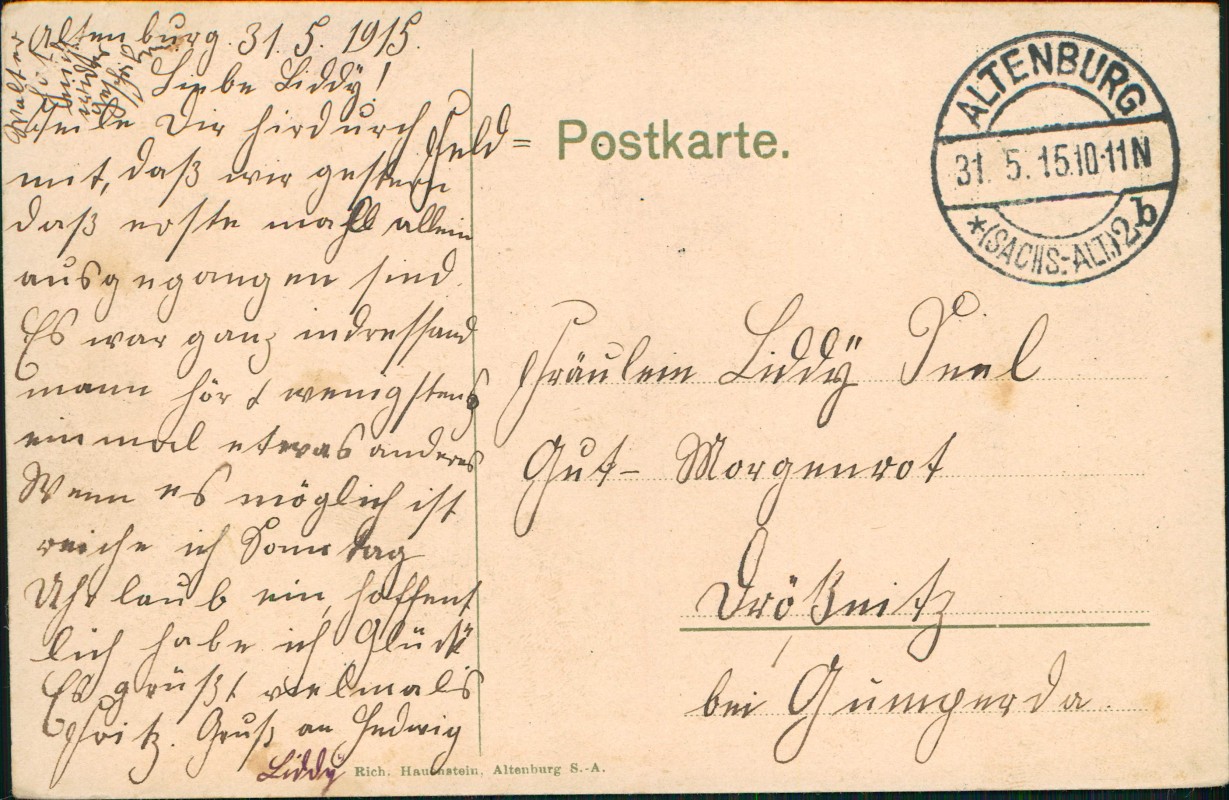 Altenburg. 31. 5. 1915.
Liebe Liddy!
Teile Dir hirdurch
mit, daß wir gestern
daß erste mahl allein
ausgegangen sind.
Es war ganz indressand
mann hört wenigstens
einmal etwas anderes
Wenn es möglich ist
reiche ich Sonntag
Uhrlaub ein, hoffent
lich habe ich Glück
Es grüßt vielmals
Fritz. Gruß an Hedwig
Liddy
Walter
Feld= Postkarte.
ALTENBURG
31. 5. 15.10-11N
*(SACHS.-ALT.)2b
Fräulein Liddy
Gut- Morgenrot
Drößnitz
bei Gumperda.
Rich. Hauenstein, Altenburg S.-A.